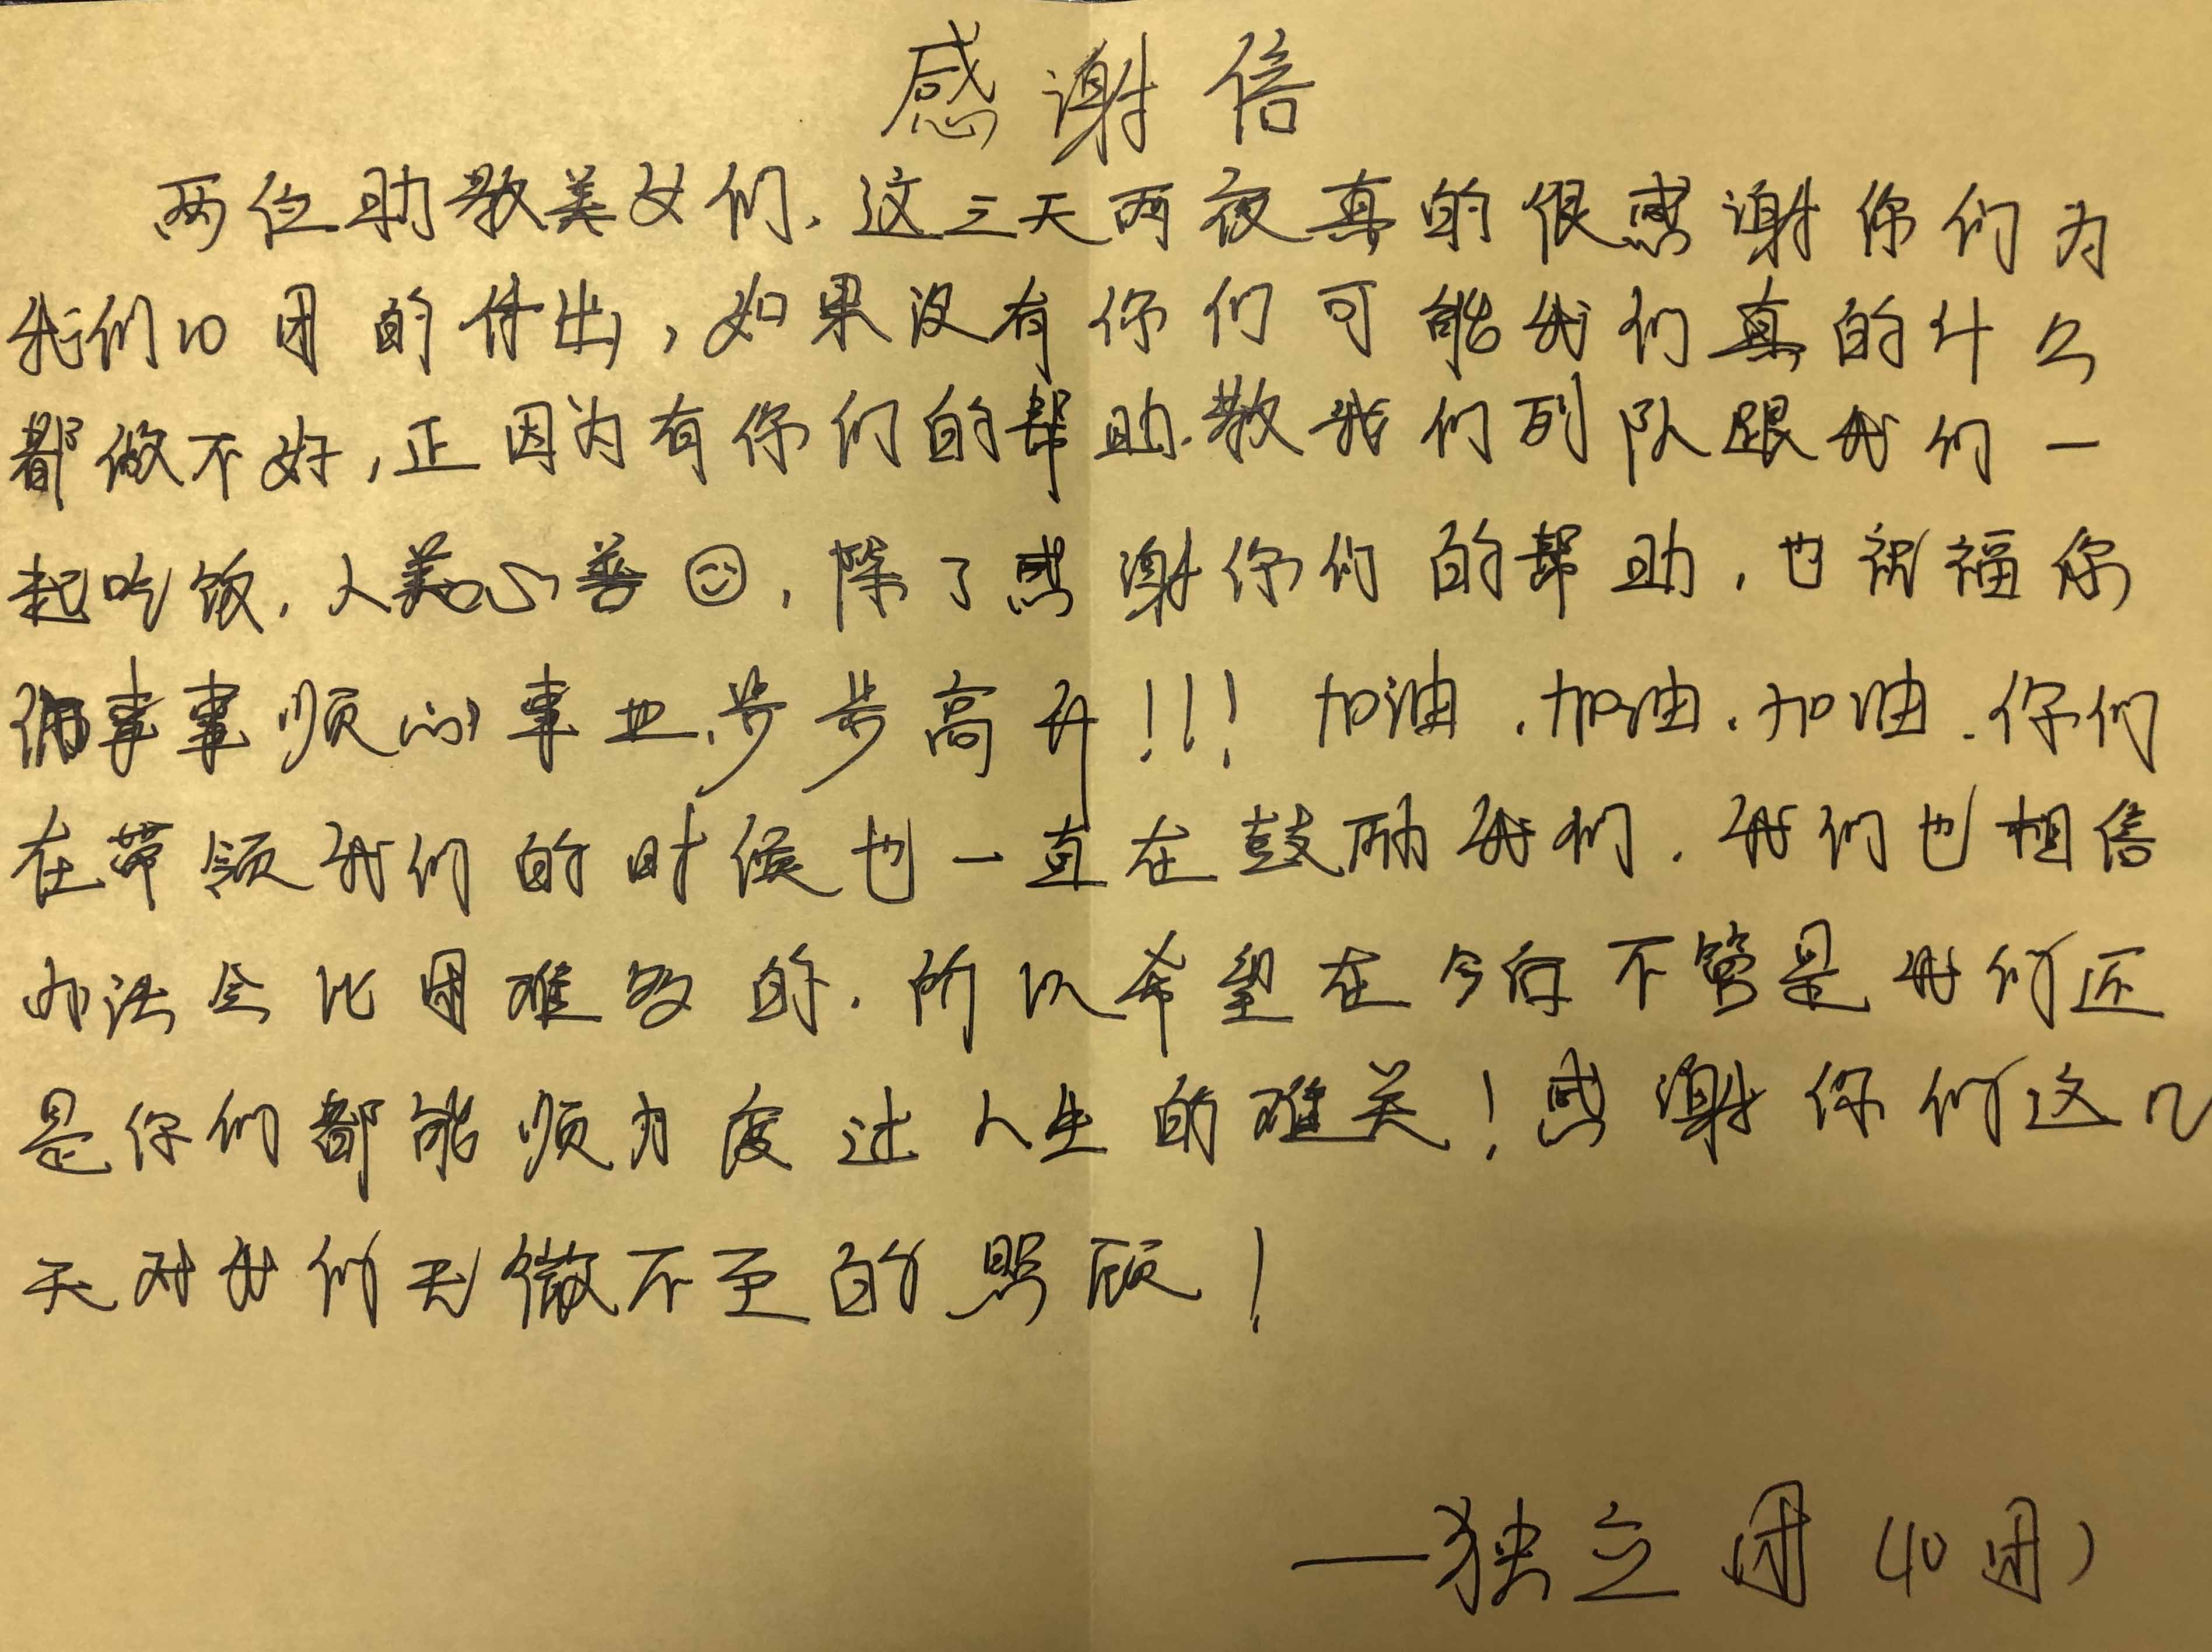 感谢信
两位助教美女们，这三天两夜真的很感谢你们为
我们10团的付出，如果没有你们可能我们真的什么
都做不好，正因为有你们的帮助，教我们列队跟我们一
起吃饭，人美心善☺，除了感谢你们的帮助，也祝福你
们事事顺心，事业步步高升！！！加油，加油，加油，你们
在带领我们的时候也一直在鼓励我们，我们也相信
办法会比困难多的，所以希望在今后不管是我们还
是你们都能顺力度过人生的难关！感谢你们这几
天对我们无微不至的照顾！
——独立团（10团）